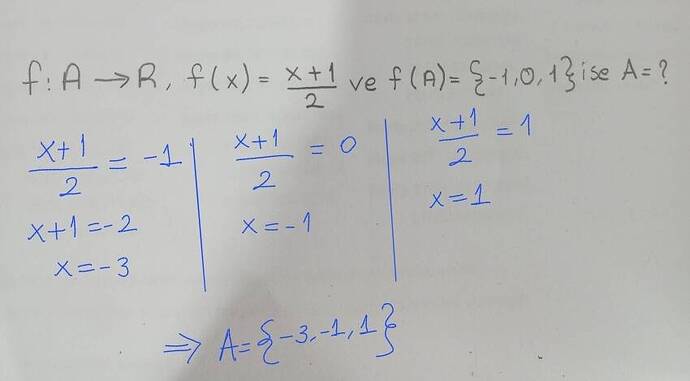 f: A → R, f(x) = (x+1)/2 ve f(A) = {-1, 0, 1} ise A = ?
(x+1)/2 = -1
x+1 = -2
x = -3
(x+1)/2 = 0
x = -1
(x+1)/2 = 1
x = 1
⇒ A = {-3, -1, 1}